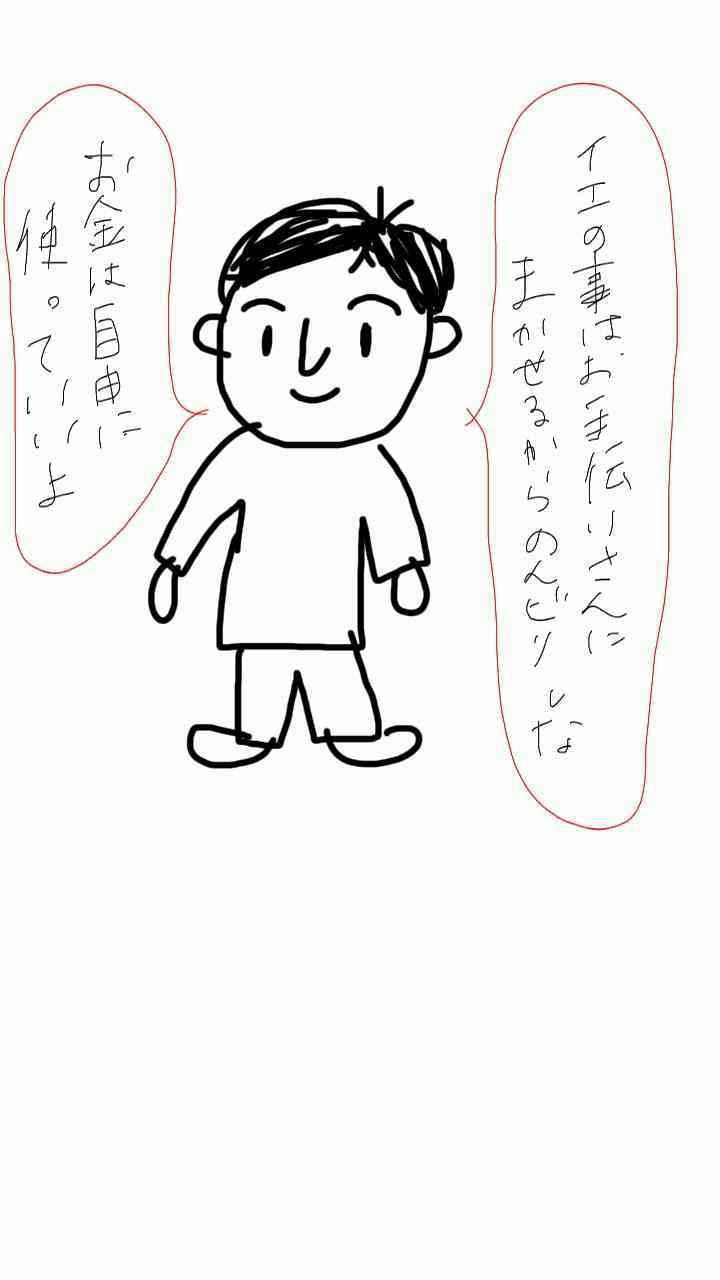 イエの事はお手伝いさんに
まかせるからのんびりしな
お金は自由に
使っていいよ